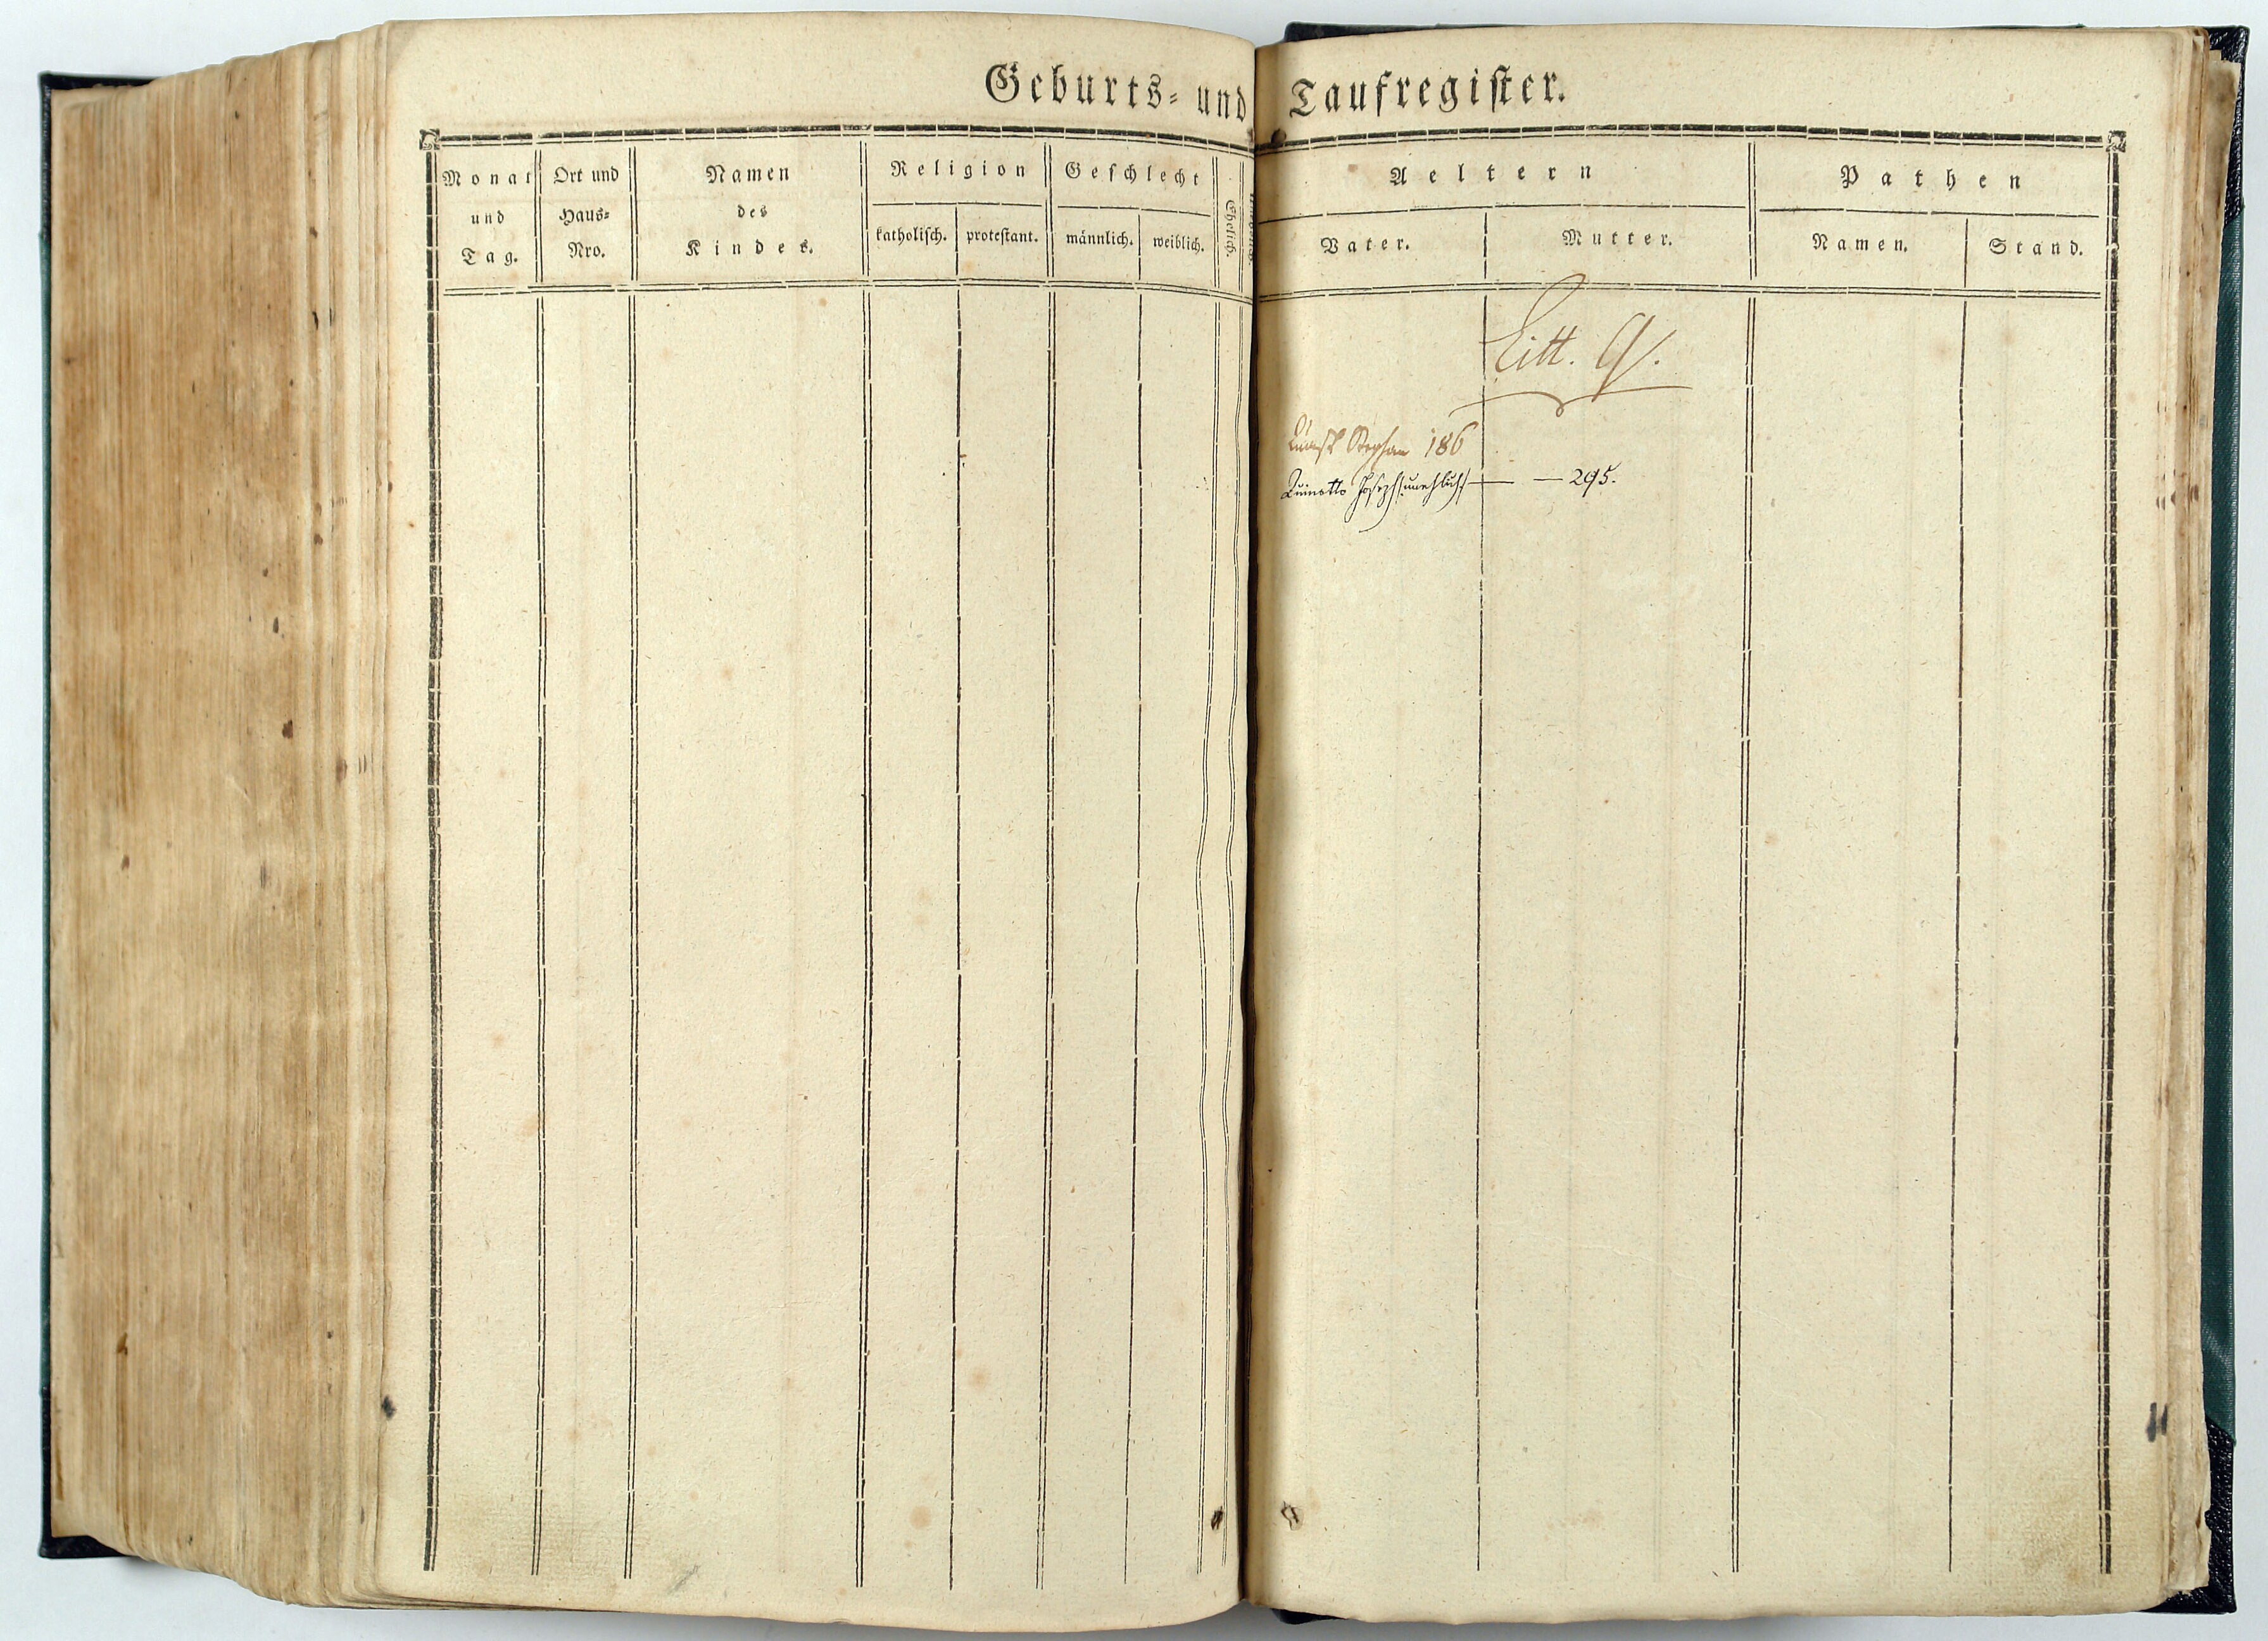 Geburts- und Taufregister.
Monat und Tag.
Ort und Haus- Nro.
Namen des Kindes.
Religion
katholisch.
protestant.
Geschlecht
männlich.
weiblich.
Ehelich.
Aeltern
Vater.
Mutter.
Pathen
Namen.
Stand.
Litt. Q.
Stephan 186
Quinotto Joseph unehlich — — 295.